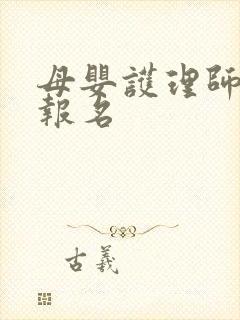 母嬰護理師
報名
古義